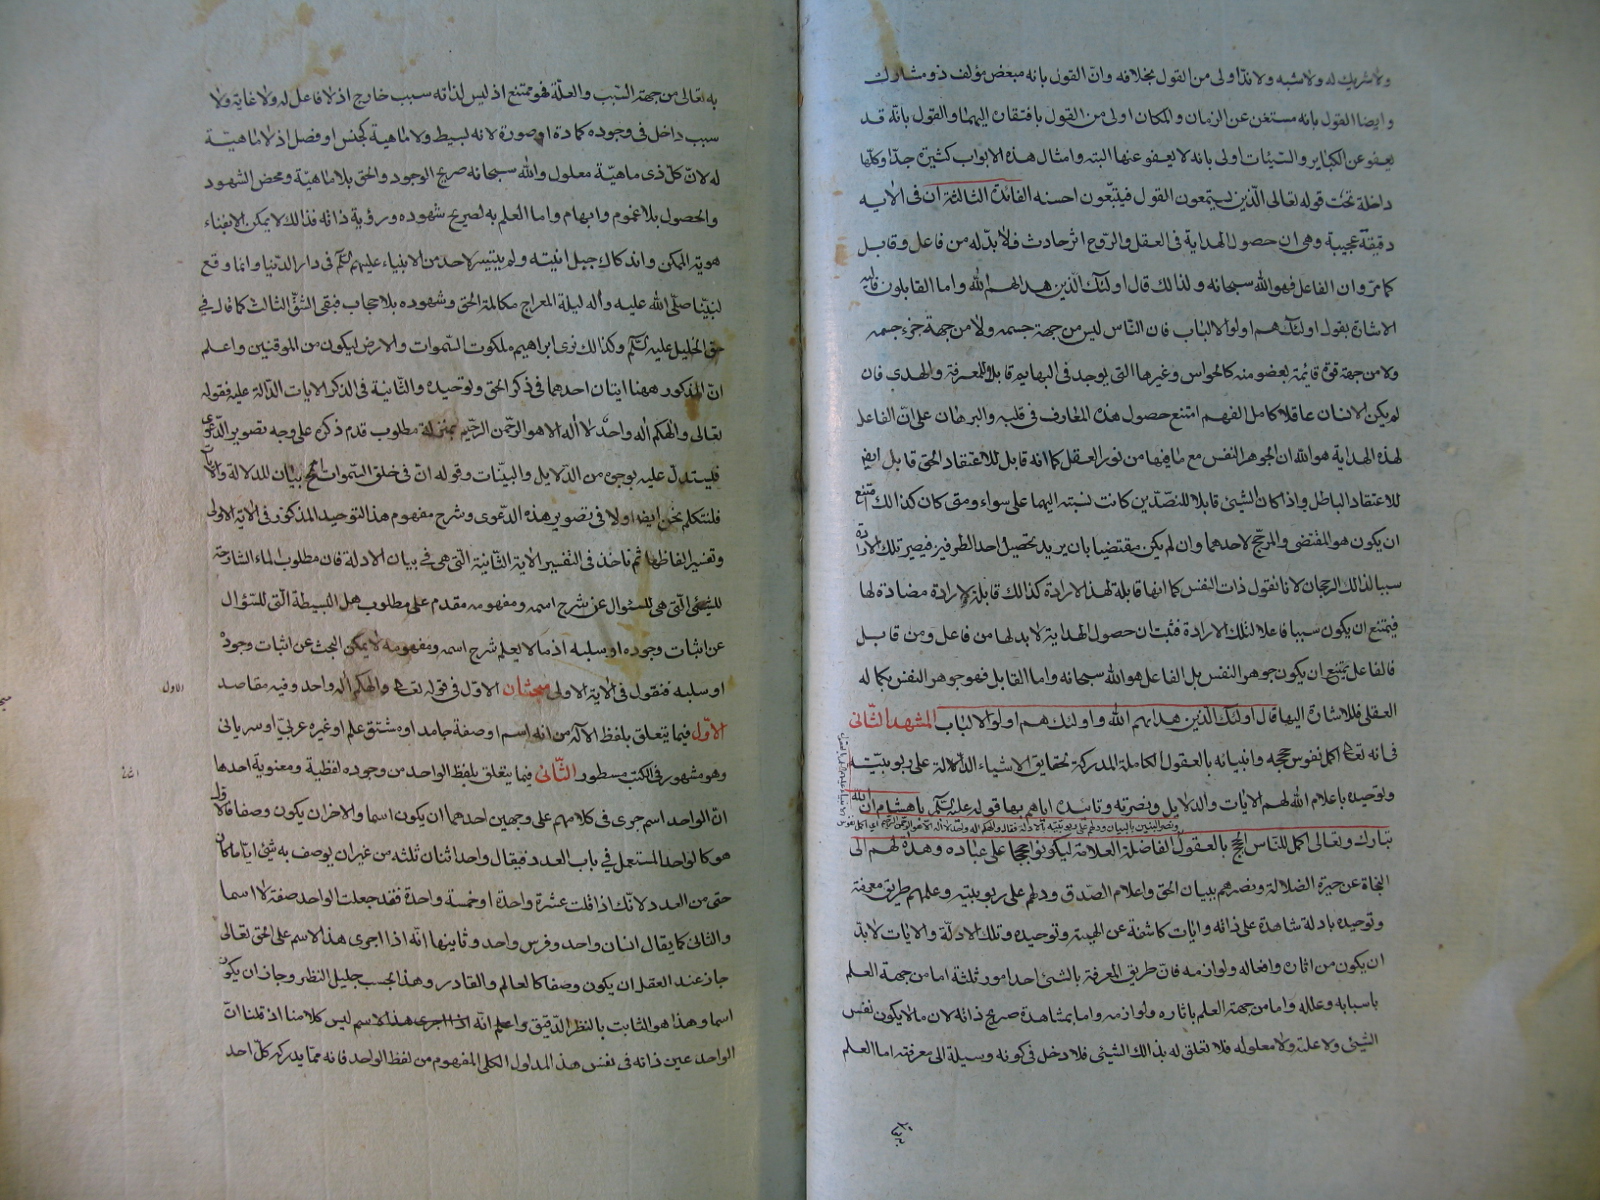 ولا شريك له ولا شبه ولا ندّ اولى من القول بخلافه وانّ القول بانه مبعض مؤلف ذو مشارك
وايضا القول بانه مستغن عن الزمان والمكان اولى من القول بافتقاره اليهما والقول بانّه قد
يعفو عن الكباير والسّيّئات اولى بانه لا يعفو عنها البته وامثال هذه الابواب كثيرة جدّا وكلّها
داخلة تحت قوله تعالى الّذين يستمعون القول فيتّبعون احسنه الفائدة الثالثة ان فى الايه
دقيقة عجيبة وهى ان حصول الهداية فى العقل والرّوح اثر حادث فلا بدّ له من فاعل وقابل
كما مرّ وان الفاعل فهو الله سبحانه ولذالك قال اولئك الّذين هداهم الله واما القابلون فاليه
الاشارة بقول اولئك هم اولوا الالباب فان النّاس ليس من جهة جسمه ولا من جهة جزء جسمه
ولا من جهة قوة قائمة بعضو منه كالحواس وغيرها التى يوجد فى البهايم قابلا للمعرفة والهدى فان
لم يكن الانسان عاقلا كامل الفهم امتنع حصول هذه المعارف فى قلبه والبرهان على انّ الفاعل
لهذه الهداية هو الله ان الجوهر النفس مع ما فيها من نور العقل كما انه قابل للاعتقاد الحق قابل ايضا
للاعتقاد الباطل واذا كان الشيئ قابلا للضّدّين كانت نسبته اليهما على سواء ومتى كان كذالك امتنع
ان يكون هو المقتضى والمرجّح لاحدهما وان لم يكن مقتضيا بان يريد تحصيل احد الطرفين فيصير تلك الارادة
سببا لذالك الرجحان لانا نقول ذات النفس كما انها قابلة لهذا الارادة كذالك قابلة لارادة مضادة لها
فيمتنع ان يكون سببا فاعلا لتلك الارادة فثبت ان حصول الهداية لا بد لها من فاعل ومن قابل
فالفاعل يمتنع ان يكون جوهر النفس بل الفاعل هو الله سبحانه واما القابل فهو جوهر النفس بكماله
العقلى فللاشارة اليها قال اولئك الّذين هداهم الله واولئك هم اولوا الالباب المشهد الثّانى
فى انه تعالى اكمل نفوس حججه وانبيائه بالعقول الكاملة المدركة بحقايق الاشياء الدّالة على ربوبيّته
وتوحيده باعلام الله لهم الايات والدلايل ونصرته وتاييده اياهم بها قوله عليه السّلم يا هشام ان الله
ونصر النبيين بالبيان ودلهم على ربوبيّته بالادلة فقال والهكم اله واحد لا اله الا هو الرحمن الرحيم اى اكمل نفوس
تبارك وتعالى اكمل للناس الحجج بالعقول الفاضلة العلامة ليكونوا حججا على عباده وهداة لهم الى
النجاة عن حيرة الضلالة ونصرهم ببيان الحق واعلام الصّدق ودلهم على ربوبيته وعلمهم طريق معرفته
وتوحيده بادلة شاهدة على ذاته وايات كاشفة عن الهيته وتوحيده وتلك الادلّة والايات لا بدّ
ان يكون من اثاره وافعاله ولوازمه فانّ طريق المعرفة بالشئ احد امور ثلثة اما من جهة العلم
باسبابه وعلله واما من جهة العلم باثاره ولوازمه واما بمشاهدة صريح ذاته لان ما لا يكون نفس
الشيئ ولا علته ولا معلوله فلا تعلق له بذالك الشيئ فلا دخل فى كونه وسيلة الى معرفته اما العلم
به تعالى
به تعالى من جهة السّبب والعلّة فهو ممتنع اذ ليس لذاته سبب خارج اذ لا فاعل له ولا غاية ولا
سبب داخل فى وجوده كمادة او صورة لانه بسيط ولا ماهية كجنس او فصل اذ لا ماهيّة
له لانّ كلّ ذى ماهيّة معلول والله سبحانه صريح الوجود والحق بلا ماهيّة ومحض الشهود
والحصول بلا غموم وابهام واما العلم به لصريح شهوده ورؤية ذاته فذالك لا يمكن الا بفناء
هوية الممكن واندكاك جبل انّيته ولم يتيسّر لاحد من الانبياء عليهم السّلم فى دار الدّنيا وانما وقع
لنبيّنا صلّى الله عليه وآله ليلة المعراج مكالمة الحق وشهوده بلا حجاب فبقى الشّقّ الثالث كما قال فى
حق الخليل عليه السّلم وكذالك نرى ابراهيم ملكوت السّموات والارض ليكون من الموقنين واعلم
انّ المذكور ههنا ايتان احدهما فى ذكر الحق وتوحيده والثّانية فى الذكر الايات الدّالة عليه فقوله
تعالى والهكم اله واحد لا اله الا هو الرّحمن الرّحيم بمنزلة مطلوب قدم ذكره على وجه تصوير الدّعوى
فليستدلّ عليه بوجوه من الدّلايل والبيّنات وقوله انّ فى خلق السّموات الخ بيان للدلالة والايات
فلنتكلم نحن ايضا اولا فى تصوير هذه الدّعوى وشرح مفهوم هذا التوحيد المذكور فى الاية الاولى
وتفسير الفاظها ثم ناخذ فى التفسير الاية الثّانية الّتى هى فى بيان الادلة فان مطلوب الماء الشّارحة
للشيئ الّتى هى للسّؤال عن شرح اسمه ومفهومه مقدم على مطلوب هل البسيطة الّتى للسّؤال
عن اثبات وجوده او سلبه اذ ما لا يعلم شرح اسمه ومفهومه لا يمكن البحث عن اثبات وجوده
او سلبه فنقول فى الاية الاولى مبحثان الاوّل فى قوله تعالى والهكم اله واحد وفيه مقاصد
الاوّل فيما يتعلق بلفظ الآله من انه اسم او صفة جامد او مشتق علم او غيره عربيّ او سريانى
وهو مشهور فى الكتب مسطور الثّانى فيما يتعلق بلفظ الواحد من وجوده لفظية ومعنوية احدها
انّ الواحد اسم جرى فى كلامهم على وجهين احدهما ان يكون اسما والاخر ان يكون وصفا فالاول
هو كالواحد المستعمل فى باب العدد فيقال واحد اثنان ثلثه من غير ان يوصف به شئ ايّا ما كان
حتى من العدد لانّك اذا قلت عشرة واحدة او خمسة واحدة فقد جعلت الواحد صفة لا اسما
والثانى كما يقال انسان واحد وفرس واحد وثانيها انّه اذا اجرى هذا الاسم على الحق تعالى
جاز عند العقل ان يكون وصفا كالعالم والقادر وهذا بحسب جليل النظر وجاز ان يكون
اسما وهذا هو الثابت بالنظر الدّقيق واعلم انّه اذا اجرى هذا الاسم ليس كلامنا اذ قلنا انّ
الواحد عين ذاته فى نفس هذ المدلول الكلى المفهوم من لفظ الواحد فانه ممّا يدركه كلّ احد
الاول